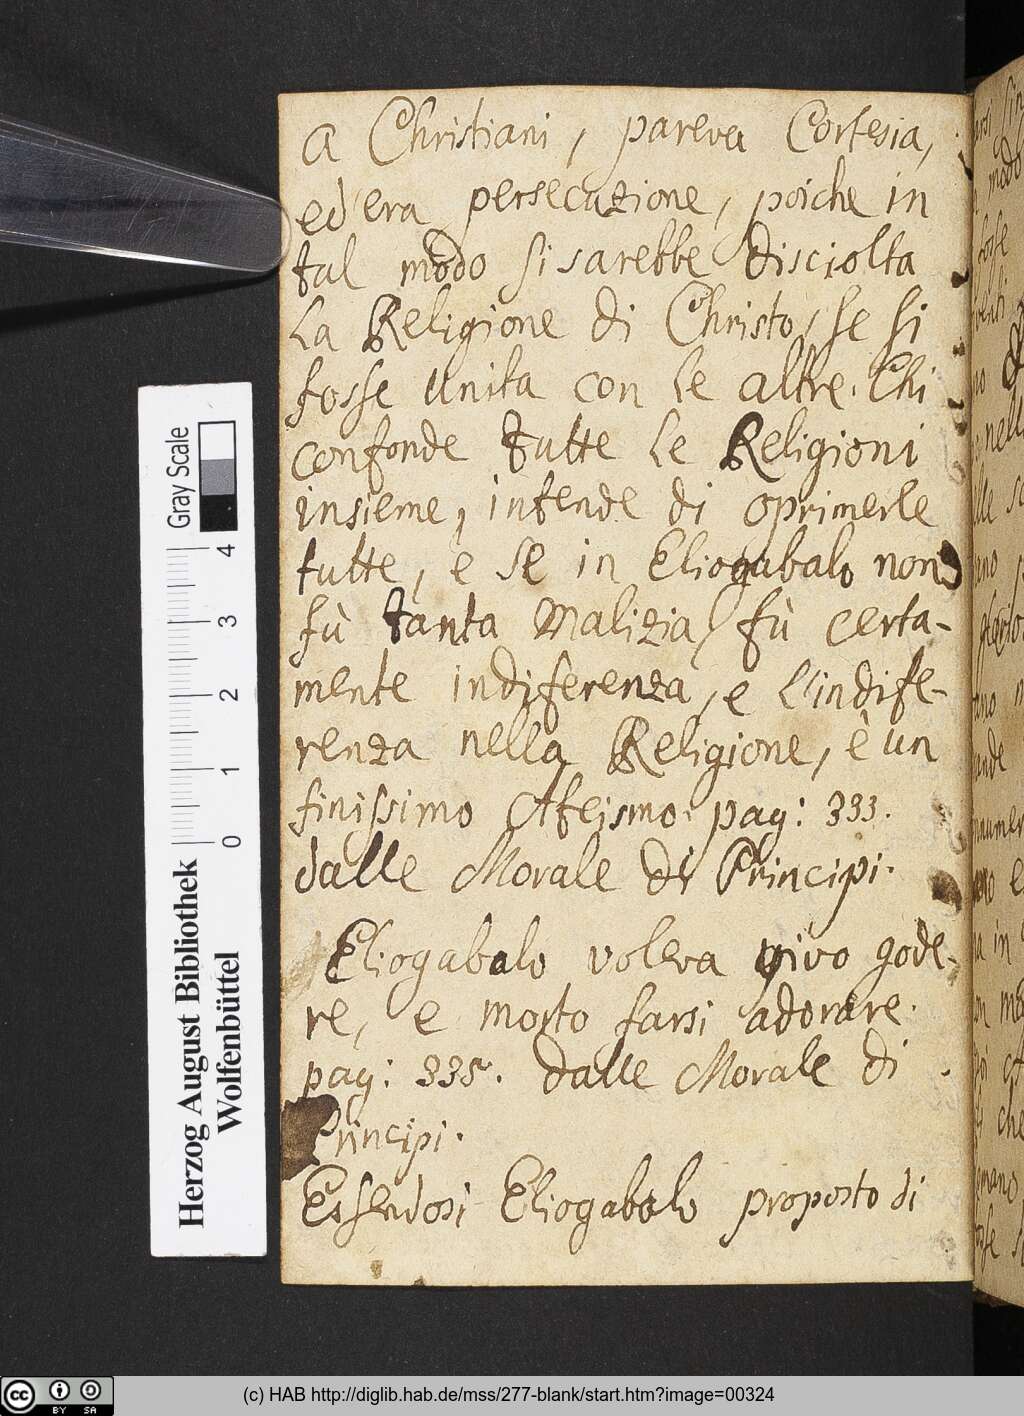 a Christiani, pareva Cortesia,
ed'era persecuzione, poiche in
tal modo si sarebbe disciolta
la Religione di Christo, se si
fosse unita con le altre. Chi
confonde tutte le Religioni
insieme, intende di oprimerle
tutte, e se in Eliogabalo non
fù tanta malizia, fù certa-
mente indiferenza, e l'indife-
renza nella Religione, è un
finissimo Ateismo. pag: 333.
dalle Morale di Principi.
Eliogabalo voleva vivo gode-
re, e morto farsi adorare.
pag: 335. dalle Morale di
Principi.
Essendosi Eliogabalo proposto di
Gray Scale
0 1 2 3 4
Herzog August Bibliothek
Wolfenbüttel
cc BY SA
(c) HAB http://diglib.hab.de/mss/277-blank/start.htm?image=00324